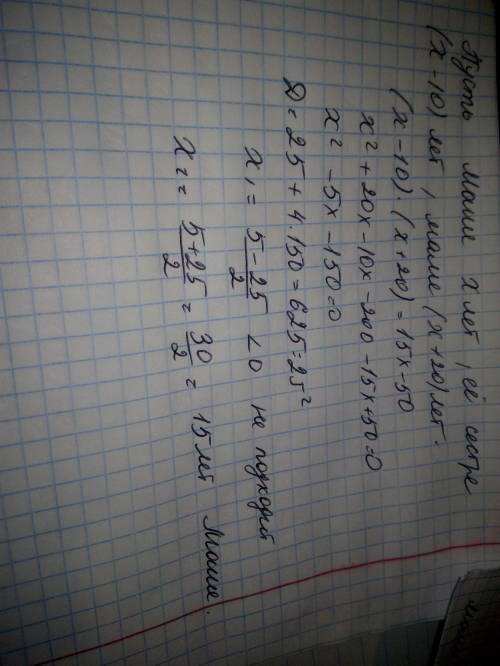 Пусть Маше x лет, её сестре
(x-10) лет, маме (x+20) лет.
(x-10)·(x+20)=15x-50
x²+20x-10x-200-15x+50=0
x²-5x-150=0
D=25+4·150=625=25²
x₁=(5-25)/2 <0 не подходит
x₂=(5+25)/2=30/2= 15 лет Маше.